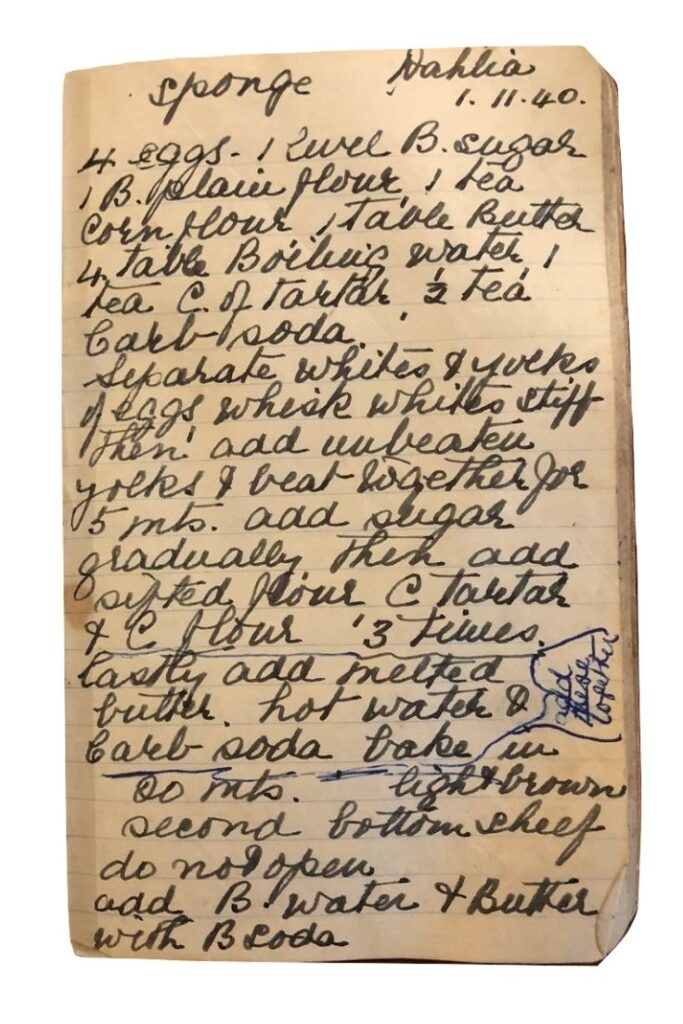 sponge Dahlia
1.11.40.
4 eggs - 1 level B. sugar
1 B. plain flour, 1 tea
corn flour, 1 table Butter
4 table Boiling water, 1
tea C. of tartar, ½ tea
Carb soda.
Separate whites & yolks
of eggs whisk whites stiff
then add unbeaten
yolks & beat together for
5 mts. add sugar
gradually then add
sifted flour C tartar
& C flour '3 times.
lastly add melted
butter. hot water &
Carb soda bake in
mts. light brown
second bottom shelf
do not open
add B. water & Butter
with B soda
add
these
together